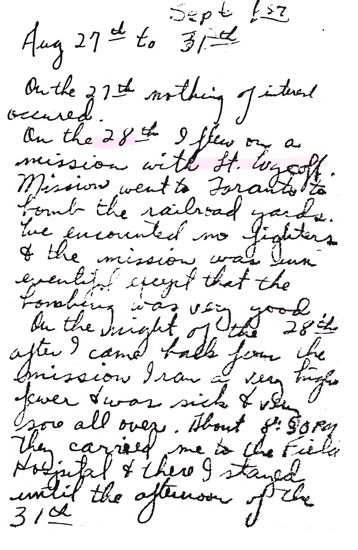 Sept 1st
Aug 27th to 31th
On the 27th nothing of interest
occured.
On the 28th I flew on a
mission with Lt. Wycoff.
Mission went to Taranto to
bomb the railroad yards.
We encounted no fighters
& the mission was un
eventful except that the
bombing was very good
On the night of the 28th
after I came back from the
mission I ran a very high
fever & was sick & very
sore all over. About 8:30 PM
they carried me to the Field
Hospital & there I stayed
until the afternoon of the
31th